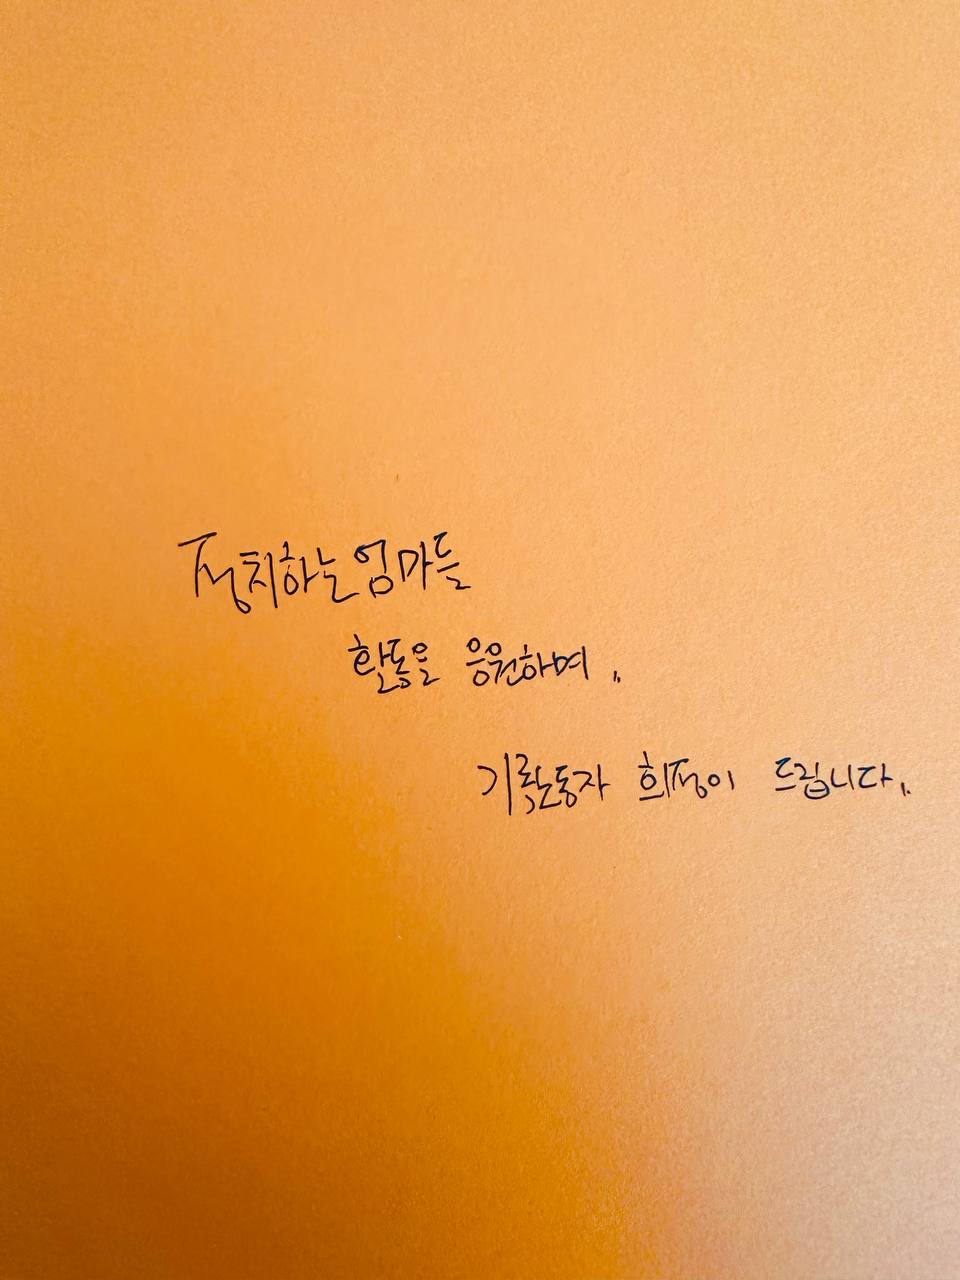 정치하는엄마들
활동을 응원하며 〃
기록노동자 희정이 드립니다〃